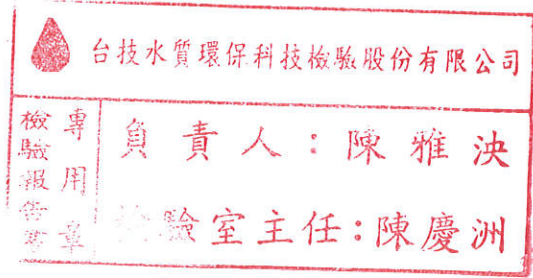 台技水質環保科技檢驗股份有限公司
檢驗報告書
專用章
負責人：陳雅泱
驗室主任：陳慶洲